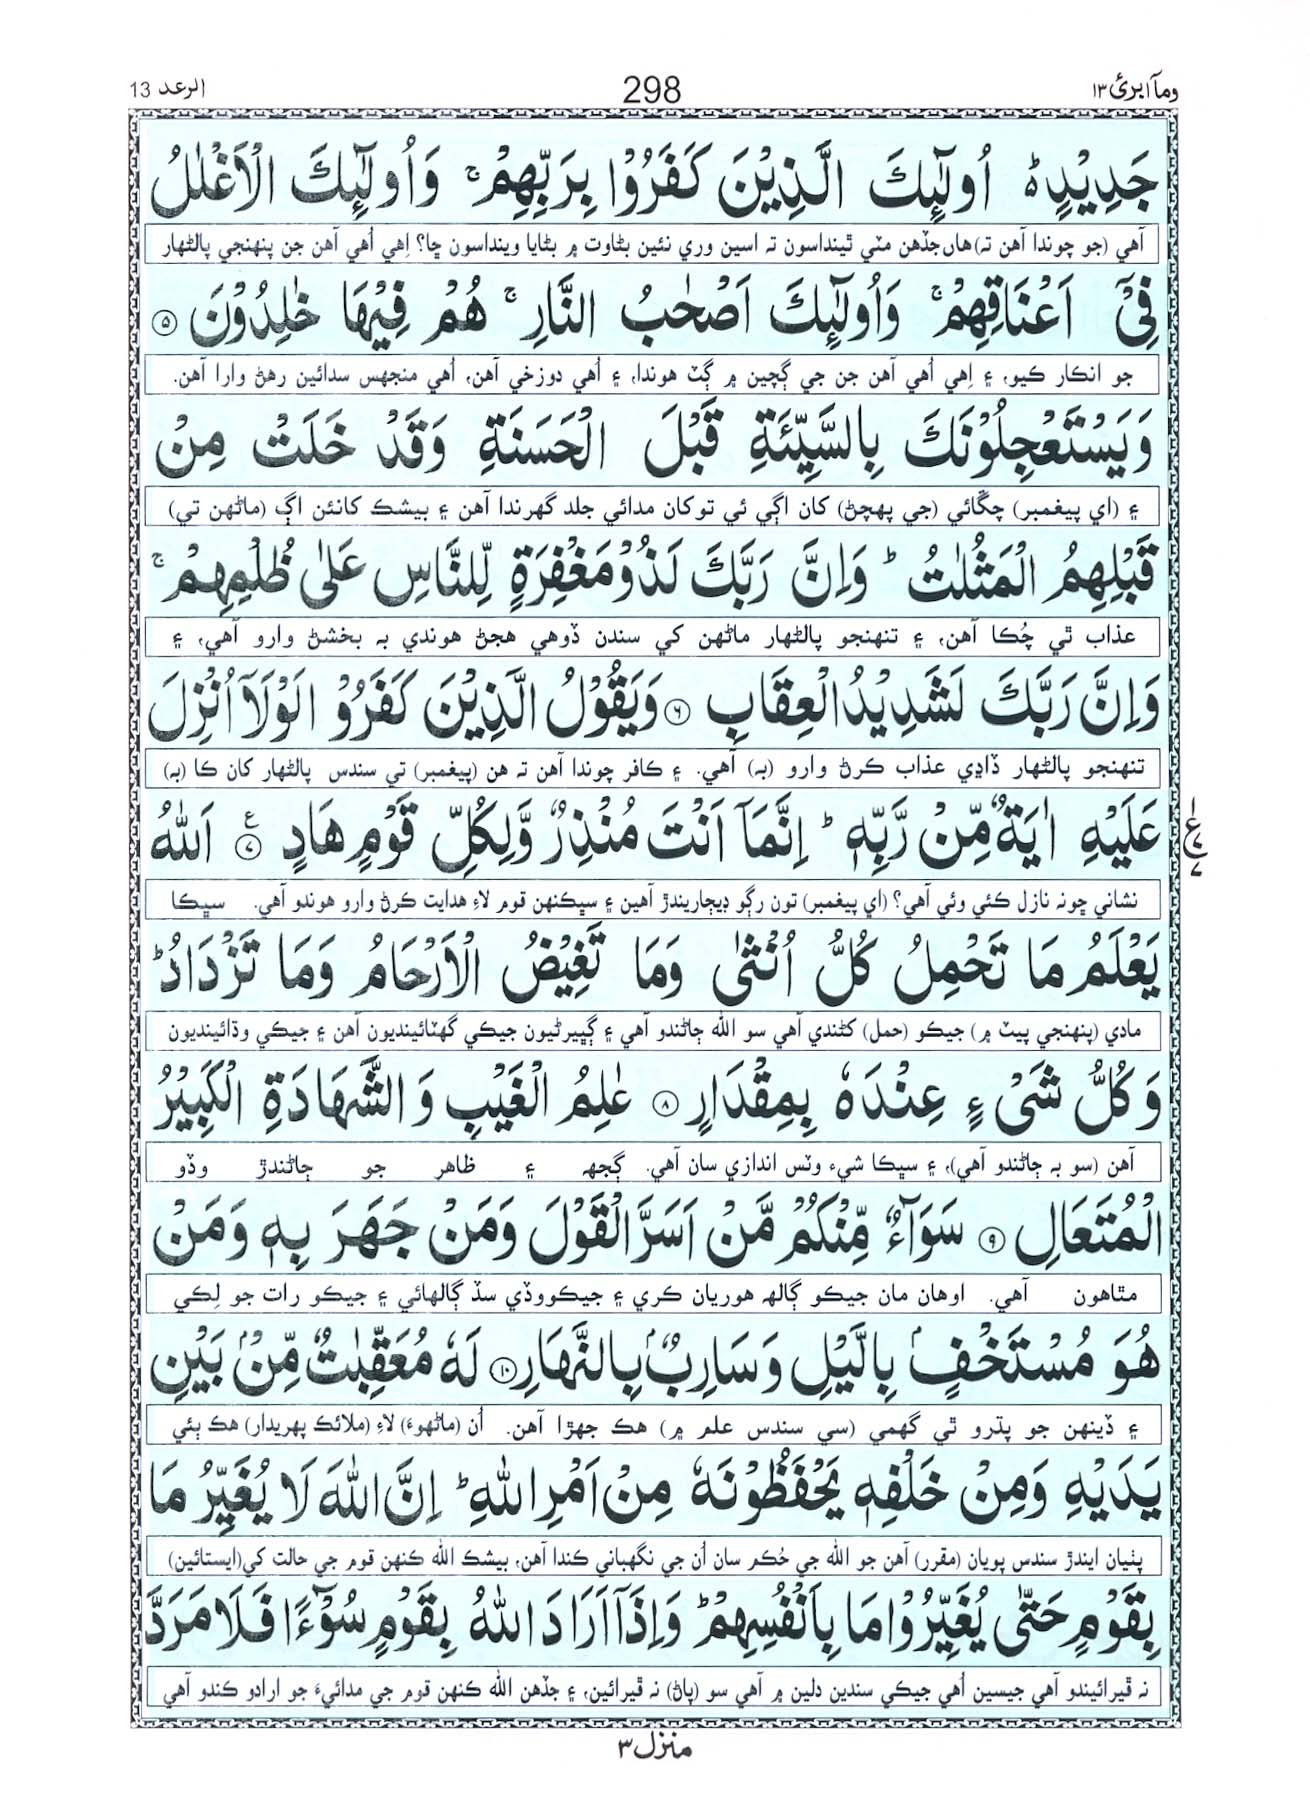 ومآ ابرئ ١٣ 298 الرعد 13
جَدِيْدٍ ؕ اُولٰٓئِكَ الَّذِيْنَ كَفَرُوْا بِرَبِّهِمْ ۚ وَاُولٰٓئِكَ الْاَغْلٰلُ
آهي (جو چوندا آهن ته) هاں جڏهن مٽي ٿينداسون ته اسين وري نئين بڻاوت ۾ بڻايا وينداسون ڇا؟ اِهي اُهي آهن جن پنهنجي پالڻهار
فِیْۤ اَعْنَاقِهِمْ ۚ وَاُولٰٓئِكَ اَصْحٰبُ النَّارِ ۚ هُمْ فِيْهَا خٰلِدُوْنَ ۝٥
جو انڪار ڪيو، ۽ اِهي اُهي آهن جن جي ڳچين ۾ ڳٽ هوندا، ۽ اُهي دوزخي آهن، اُهي منجهس سدائين رهڻ وارا آهن.
وَيَسْتَعْجِلُوْنَكَ بِالسَّيِّئَةِ قَبْلَ الْحَسَنَةِ وَقَدْ خَلَتْ مِنْ
۽ (اي پيغمبر) چڱائي (جي پهچڻ) کان اڳي ئي توکان مدائي جلد گهرندا آهن ۽ بيشڪ کانئن اڳ (ماڻهن تي)
قَبْلِهِمُ الْمَثُلٰتُ ؕ وَاِنَّ رَبَّكَ لَذُوْ مَغْفِرَةٍ لِّلنَّاسِ عَلٰى ظُلْمِهِمْ ۚ
عذاب ٿي چُڪا آهن، ۽ تنهنجو پالڻهار ماڻهن کي سندن ڏوهي هجڻ هوندي به بخشڻ وارو آهي، ۽
وَاِنَّ رَبَّكَ لَشَدِيْدُ الْعِقَابِ ۝٦ وَيَقُوْلُ الَّذِيْنَ كَفَرُوْا لَوْلَاۤ اُنْزِلَ
تنهنجو پالڻهار ڏاڍي عذاب ڪرڻ وارو (به) آهي. ۽ ڪافر چوندا آهن ته هن (پيغمبر) تي سندس پالڻهار کان ڪا (به)
عَلَيْهِ اٰيَةٌ مِّنْ رَّبِّهٖ ؕ اِنَّمَاۤ اَنْتَ مُنْذِرٌ وَّلِكُلِّ قَوْمٍ هَادٍ ۝٧ ع اَللّٰهُ
نشاني ڇونه نازل ڪئي وئي آهي؟ (اي پيغمبر) تون رڳو ڊيڄاريندڙ آهين ۽ سڀڪنهن قوم لاءِ هدايت ڪرڻ وارو هوندو آهي. سڀڪا
يَعْلَمُ مَا تَحْمِلُ كُلُّ اُنْثٰى وَمَا تَغِيْضُ الْاَرْحَامُ وَمَا تَزْدَادُ ؕ
مادي (پنهنجي پيٽ ۾) جيڪو (حمل) کڻندي آهي سو الله ڄاڻندو آهي ۽ ڳڀيرڻيون جيڪي گهٽائينديون آهن ۽ جيڪي وڌائينديون
وَكُلُّ شَیْءٍ عِنْدَهٗ بِمِقْدَارٍ ۝٨ عٰلِمُ الْغَيْبِ وَالشَّهَادَةِ الْكَبِيْرُ
آهن (سو به ڄاڻندو آهي)، ۽ سڀڪا شيء وٽس اندازي سان آهي. ڳجهه ۽ ظاهر جو ڄاڻندڙ وڏو
الْمُتَعَالِ ۝٩ سَوَآءٌ مِّنْكُمْ مَّنْ اَسَرَّ الْقَوْلَ وَمَنْ جَهَرَ بِهٖ وَمَنْ
مٿاهون آهي. اوهان مان جيڪو ڳالهه هوريان ڪري ۽ جيڪو وڏي سڏ ڳالهائي ۽ جيڪو رات جو لِڪي
هُوَ مُسْتَخْفٍۭ بِالَّيْلِ وَسَارِبٌۢ بِالنَّهَارِ ۝١٠ لَهٗ مُعَقِّبٰتٌ مِّنْۢ بَيْنِ
۽ ڏينهن جو پڌرو ٿي گهمي (سي سندس علم ۾) هڪ جهڙا آهن. اُن (ماڻهوءَ) لاءِ (ملائڪ پهريدار) هڪ ٻئي
يَدَيْهِ وَمِنْ خَلْفِهٖ يَحْفَظُوْنَهٗ مِنْ اَمْرِ اللّٰهِ ؕ اِنَّ اللّٰهَ لَا يُغَيِّرُ مَا
پٺيان ايندڙ سندس پويان (مقرر) آهن جو الله جي حُڪم سان اُن جي نگهباني ڪندا آهن، بيشڪ الله ڪنهن قوم جي حالت کي (ايستائين)
بِقَوْمٍ حَتّٰى يُغَيِّرُوْا مَا بِاَنْفُسِهِمْ ؕ وَاِذَاۤ اَرَادَ اللّٰهُ بِقَوْمٍ سُوْٓءًا فَلَا مَرَدَّ
نه ڦيرائيندو آهي جيسين اُهي جيڪي سندين دلين ۾ آهي سو (پاڻ) نه ڦيرائين، ۽ جڏهن الله ڪنهن قوم جي مدائيءَ جو ارادو ڪندو آهي
منزل ٣